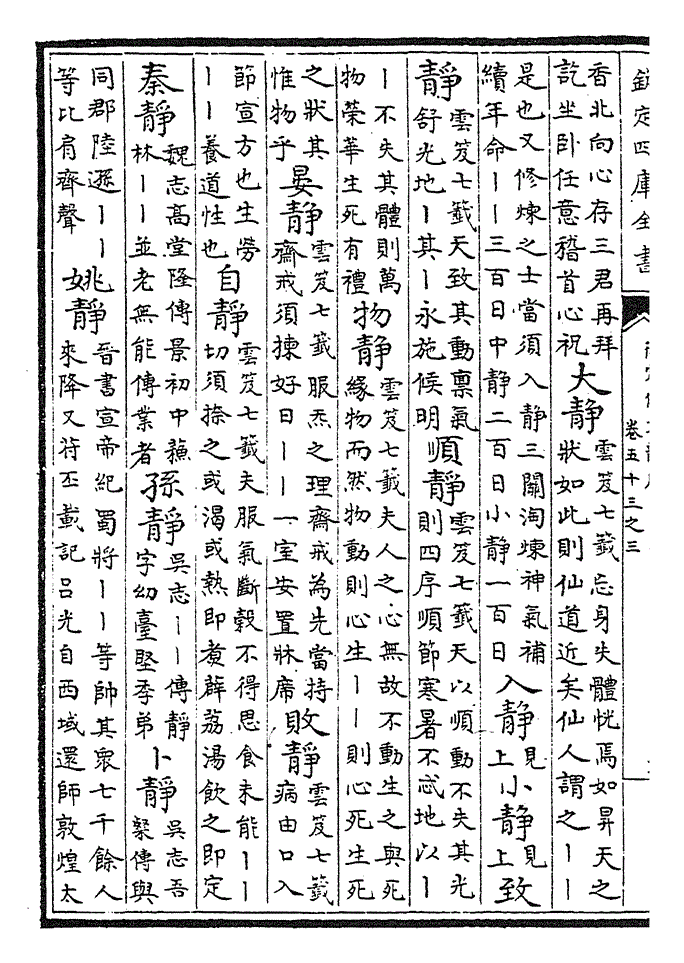 欽定四庫全書
卷五十三之三
香北向心存三君再拜
訖坐卧任意稽首心祝
大静
雲笈七籤忘身失體恍焉如昇天之
狀如此則仙道近矣仙人謂之丨丨
是也又修煉之士當須入静三關淘煉神氣補
續年命丨丨三百日中静二百日小静一百日
入静
見
上
小静
見
上
致
静
雲笈七籤天致其動禀氣
舒光地丨其丨永施候明
順静
雲笈七籤天以順動不失其光
則四序順節寒暑不忒地以丨
丨不失其體則萬
物榮華生死有禮
物静
雲笈七籤夫人之心無故不動生之與死
緣物而然物動則心生丨丨則心死生死
之狀其
惟物乎
晏静
雲笈七籤服炁之理齋戒為先當持
齋戒須揀好日丨丨一室安置牀席
敗静
雲笈七籤
病由口入
節宣方也生勞
丨丨養道性也
自静
雲笈七籤夫服氣斷榖不得思食未能丨丨
切須捺之或渴或熱即煮薜荔湯飲之即定
秦静
魏志高堂隆傳景初中蘇
林丨丨並老無能傳業者
孫静
吳志丨丨傳静
字幼臺堅季弟
卜静
吳志吾
粲傳與
同郡陸遜丨丨
等比肩齊聲
姚静
晉書宣帝紀蜀將丨丨等帥其衆七千餘人
來降又苻丕載記吕光自西域還師敦煌太